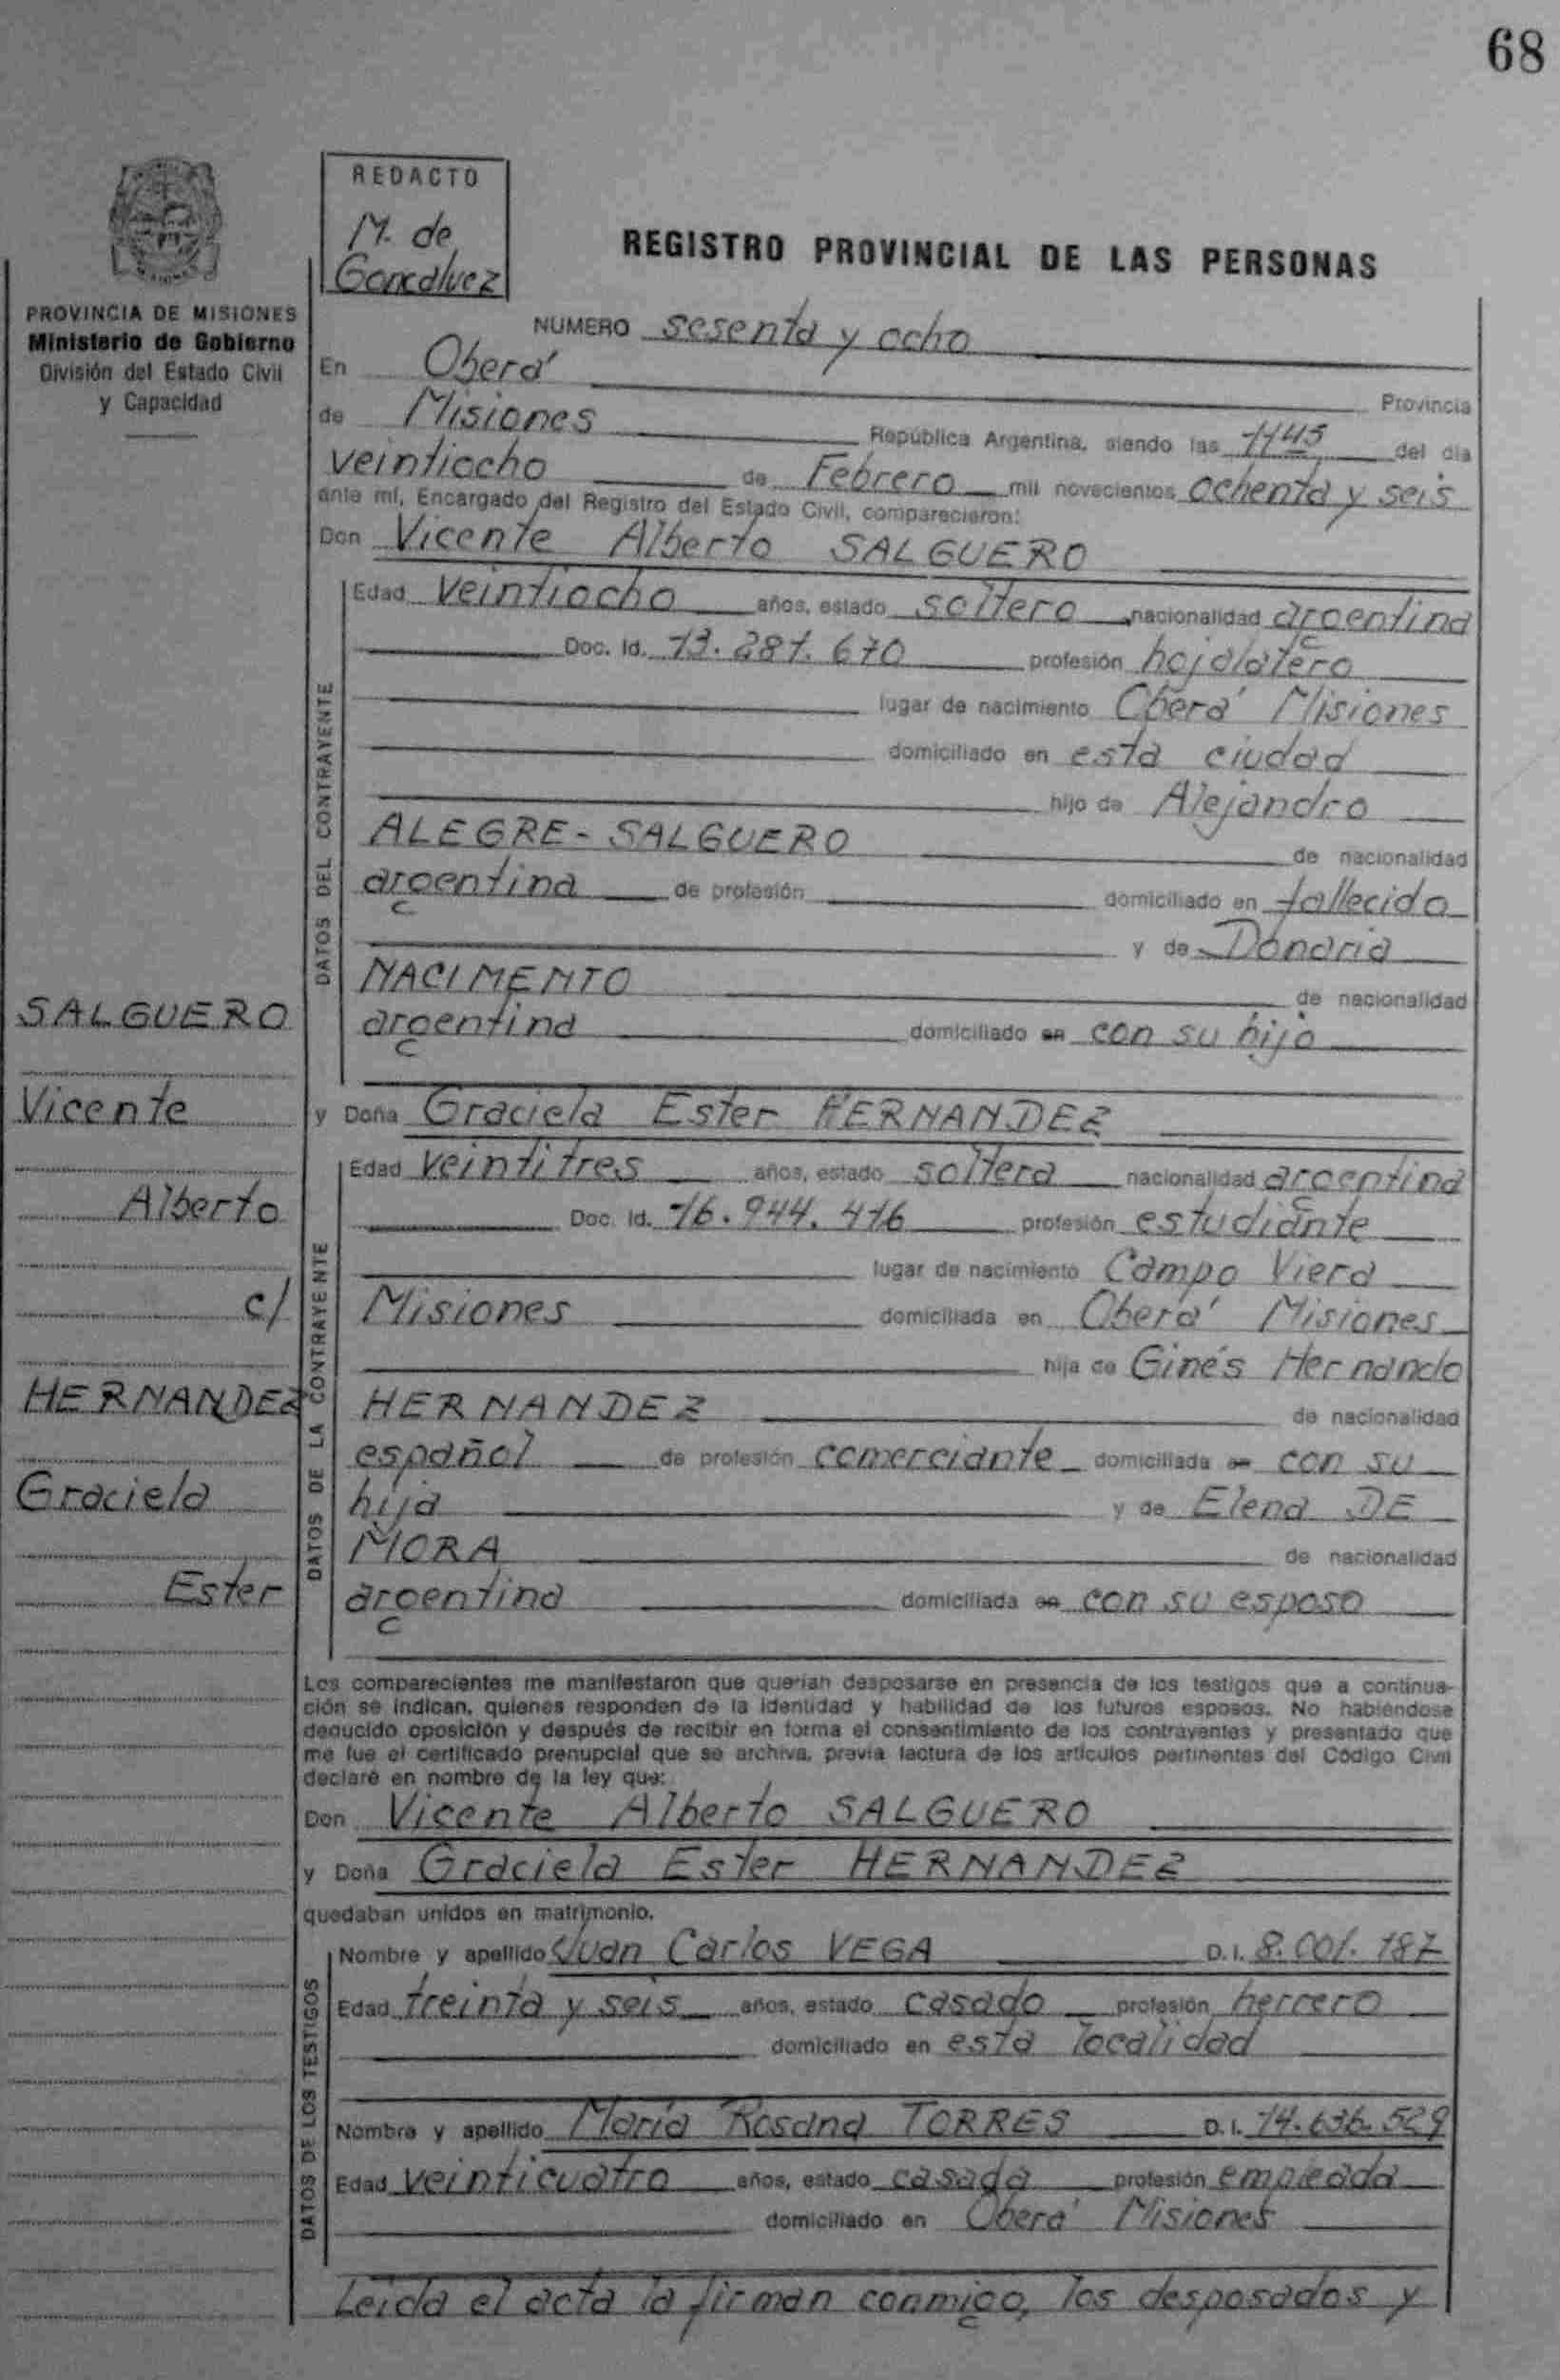 68
REDACTO
M. de
Goncalvez
REGISTRO PROVINCIAL DE LAS PERSONAS
PROVINCIA DE MISIONES
Ministerio de Gobierno
División del Estado Civil
y Capacidad
NUMERO sesenta y ocho
En Oberá Provincia
de Misiones República Argentina, siendo las 1145 del día
veintiocho de Febrero mil novecientos ochenta y seis
ante mí, Encargado del Registro del Estado Civil, comparecieron:
Don Vicente Alberto SALGUERO
DATOS DEL CONTRAYENTE
Edad veintiocho años, estado soltero nacionalidad argentina
Doc. Id. 13.281.670 profesión hojalatero
lugar de nacimiento Oberá Misiones
domiciliado en esta ciudad
hijo de Alejandro
ALEGRE-SALGUERO de nacionalidad
argentina de profesión domiciliado en fallecido
y de Donaria
NACIMENTO de nacionalidad
argentina domiciliado en con su hijo
y Doña Graciela Ester HERNANDEZ
DATOS DE LA CONTRAYENTE
Edad veintitres años, estado soltera nacionalidad argentina
Doc. Id. 16.944.416 profesión estudiante
lugar de nacimiento Campo Viera
Misiones domiciliada en Oberá Misiones
hija de Ginés Hernando
HERNANDEZ de nacionalidad
español de profesión comerciante domiciliada en con su
hija y de Elena DE
MORA de nacionalidad
argentina domiciliada en con su esposo
SALGUERO
Vicente
Alberto
c/
HERNANDEZ
Graciela
Ester
Los comparecientes me manifestaron que querían desposarse en presencia de los testigos que a continua-
ción se indican, quienes responden de la identidad y habilidad de los futuros esposos. No habiéndose
deducido oposición y después de recibir en forma el consentimiento de los contrayentes y presentado que
me fue el certificado prenupcial que se archiva, previa lectura de los artículos pertinentes del Código Civil
declaré en nombre de la ley que:
Don Vicente Alberto SALGUERO
y Doña Graciela Ester HERNANDEZ
quedaban unidos en matrimonio.
DATOS DE LOS TESTIGOS
Nombre y apellido Juan Carlos VEGA D.I. 8.001.187
Edad treinta y seis años, estado casado profesión herrero
domiciliado en esta localidad
Nombre y apellido María Rosana TORRES D.I. 14.636.529
Edad veinticuatro años, estado casada profesión empleada
domiciliado en Oberá Misiones
Leída el acta la firman conmigo, los desposados y